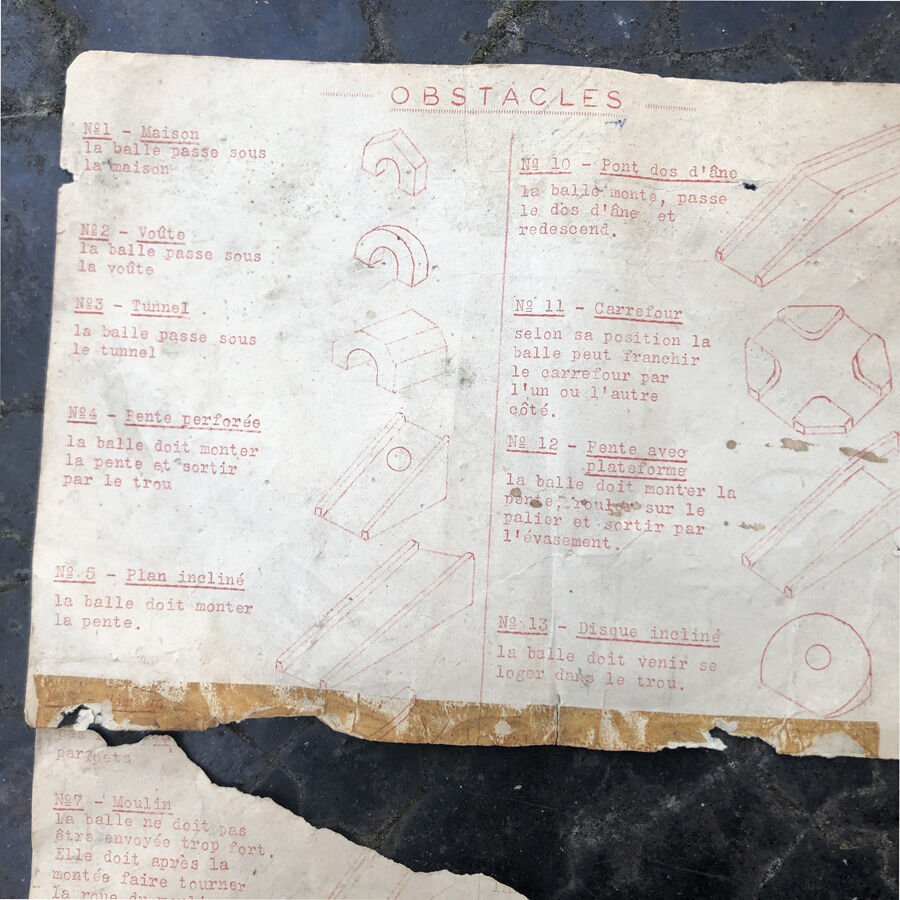 OBSTACLES
Nº1 - Maison
la balle passe sous
la maison
Nº2 - Voûte
la balle passe sous
la voûte
Nº3 - Tunnel
la balle passe sous
le tunnel
Nº4 - Pente perforée
la balle doit monter
la pente et sortir
par le trou
Nº 5 - Plan incliné
la balle doit monter
la pente.
parapets
Nº7 - Moulin
la balle ne doit pas
être envoyée trop fort.
Elle doit après la
montée faire tourner
la roue du
Nº 10 - Pont dos d'âne
la balle monte, passe
le dos d'âne et
redescend.
Nº 11 - Carrefour
selon sa position la
balle peut franchir
le carrefour par
l'un ou l'autre
côté.
Nº 12 - Pente avec
plateforme
la balle doit monter la
pente, rouler sur le
palier et sortir par
l'évasement.
Nº 13 - Disque incliné
la balle doit venir se
loger dans le trou.